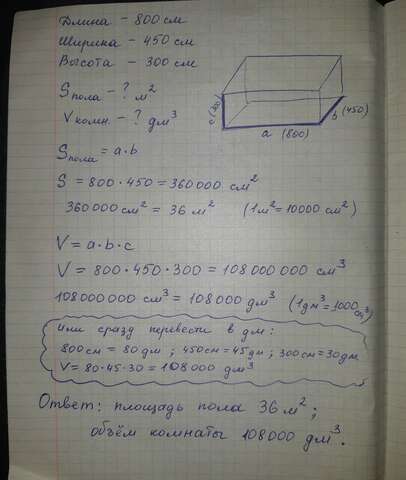 Длина - 800 см
Ширина - 450 см
Высота - 300 см
Sпола - ? м²
Vкомн. - ? дм³
c (300)
b (450)
a (800)
Sпола = a·b
S = 800·450 = 360000 см²
360000 см² = 36 м² (1м² = 10000 см²)
V = a·b·c
V = 800·450·300 = 108000000 см³
108000000 см³ = 108000 дм³ (1дм³ = 1000 см³)
Или сразу перевести в дм:
800см = 80дм ; 450см = 45дм ; 300см = 30дм
V = 80·45·30 = 108000 дм³
Ответ: площадь пола 36 м²;
объём комнаты 108000 дм³.